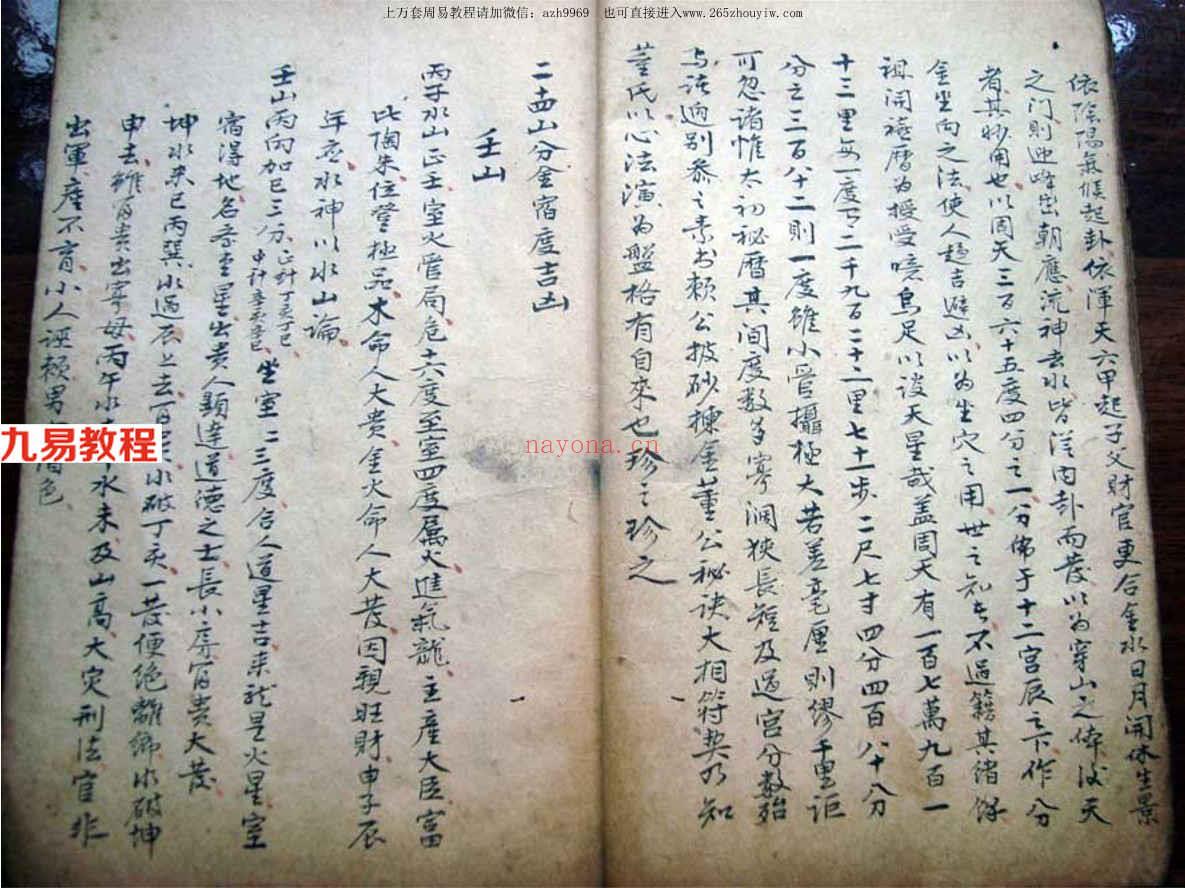 上万套周易教程请加微信：azh9969 也可直接进入www.265zhouyiw.com
依陰陽氣候起卦依渾天六甲起子父財官更合金水日月開休生景
之门則迎峰出朝應流神去水皆從內卦而發以为穿山之
者其妙用也以周天三百六十五度四分之一分佈于十二宮辰之下作分
金坐向之法使人趨吉避凶以为坐穴之用世之知者不過籍其绪
祖開禧曆为授受噫烏足以談天星哉盖周天有一百七萬九百一
十三里每一度百二千九百二十二里七十一步二尺七寸四分四百八十八分
分之三百八十二則一度雖小管攝極大若差毫厘則缪千里讵
可忽诸惟太初秘曆其间度数多寡濶狭長短及過宮分数殆
与诸迥别叅之素书赖公披砂揀金董公秘诀大相符契乃知
董氏以心法演为盤格有自來也珍之珍之
二十四山分金宿度吉凶
壬山
丙子水山正壬室火管局危十六度至室四度屬火進氣龍主産大臣富
比陶朱位登極品木命人大贵金火命人大发因親旺財申子辰
年应水神以水山論
壬山丙向加巳三分坐室二三度合人道星吉来龙是火星室
宿得地名奎星出贵人顯達道德之士長小房富贵大发
坤水来巳丙巽水過辰上去小破丁亥一发便绝離鄉水破坤
申去雖富贵出寡母丙午水水未及山高大灾刑法官非
出軍産不育小人诬赖男色
九易教程
nayona.cn